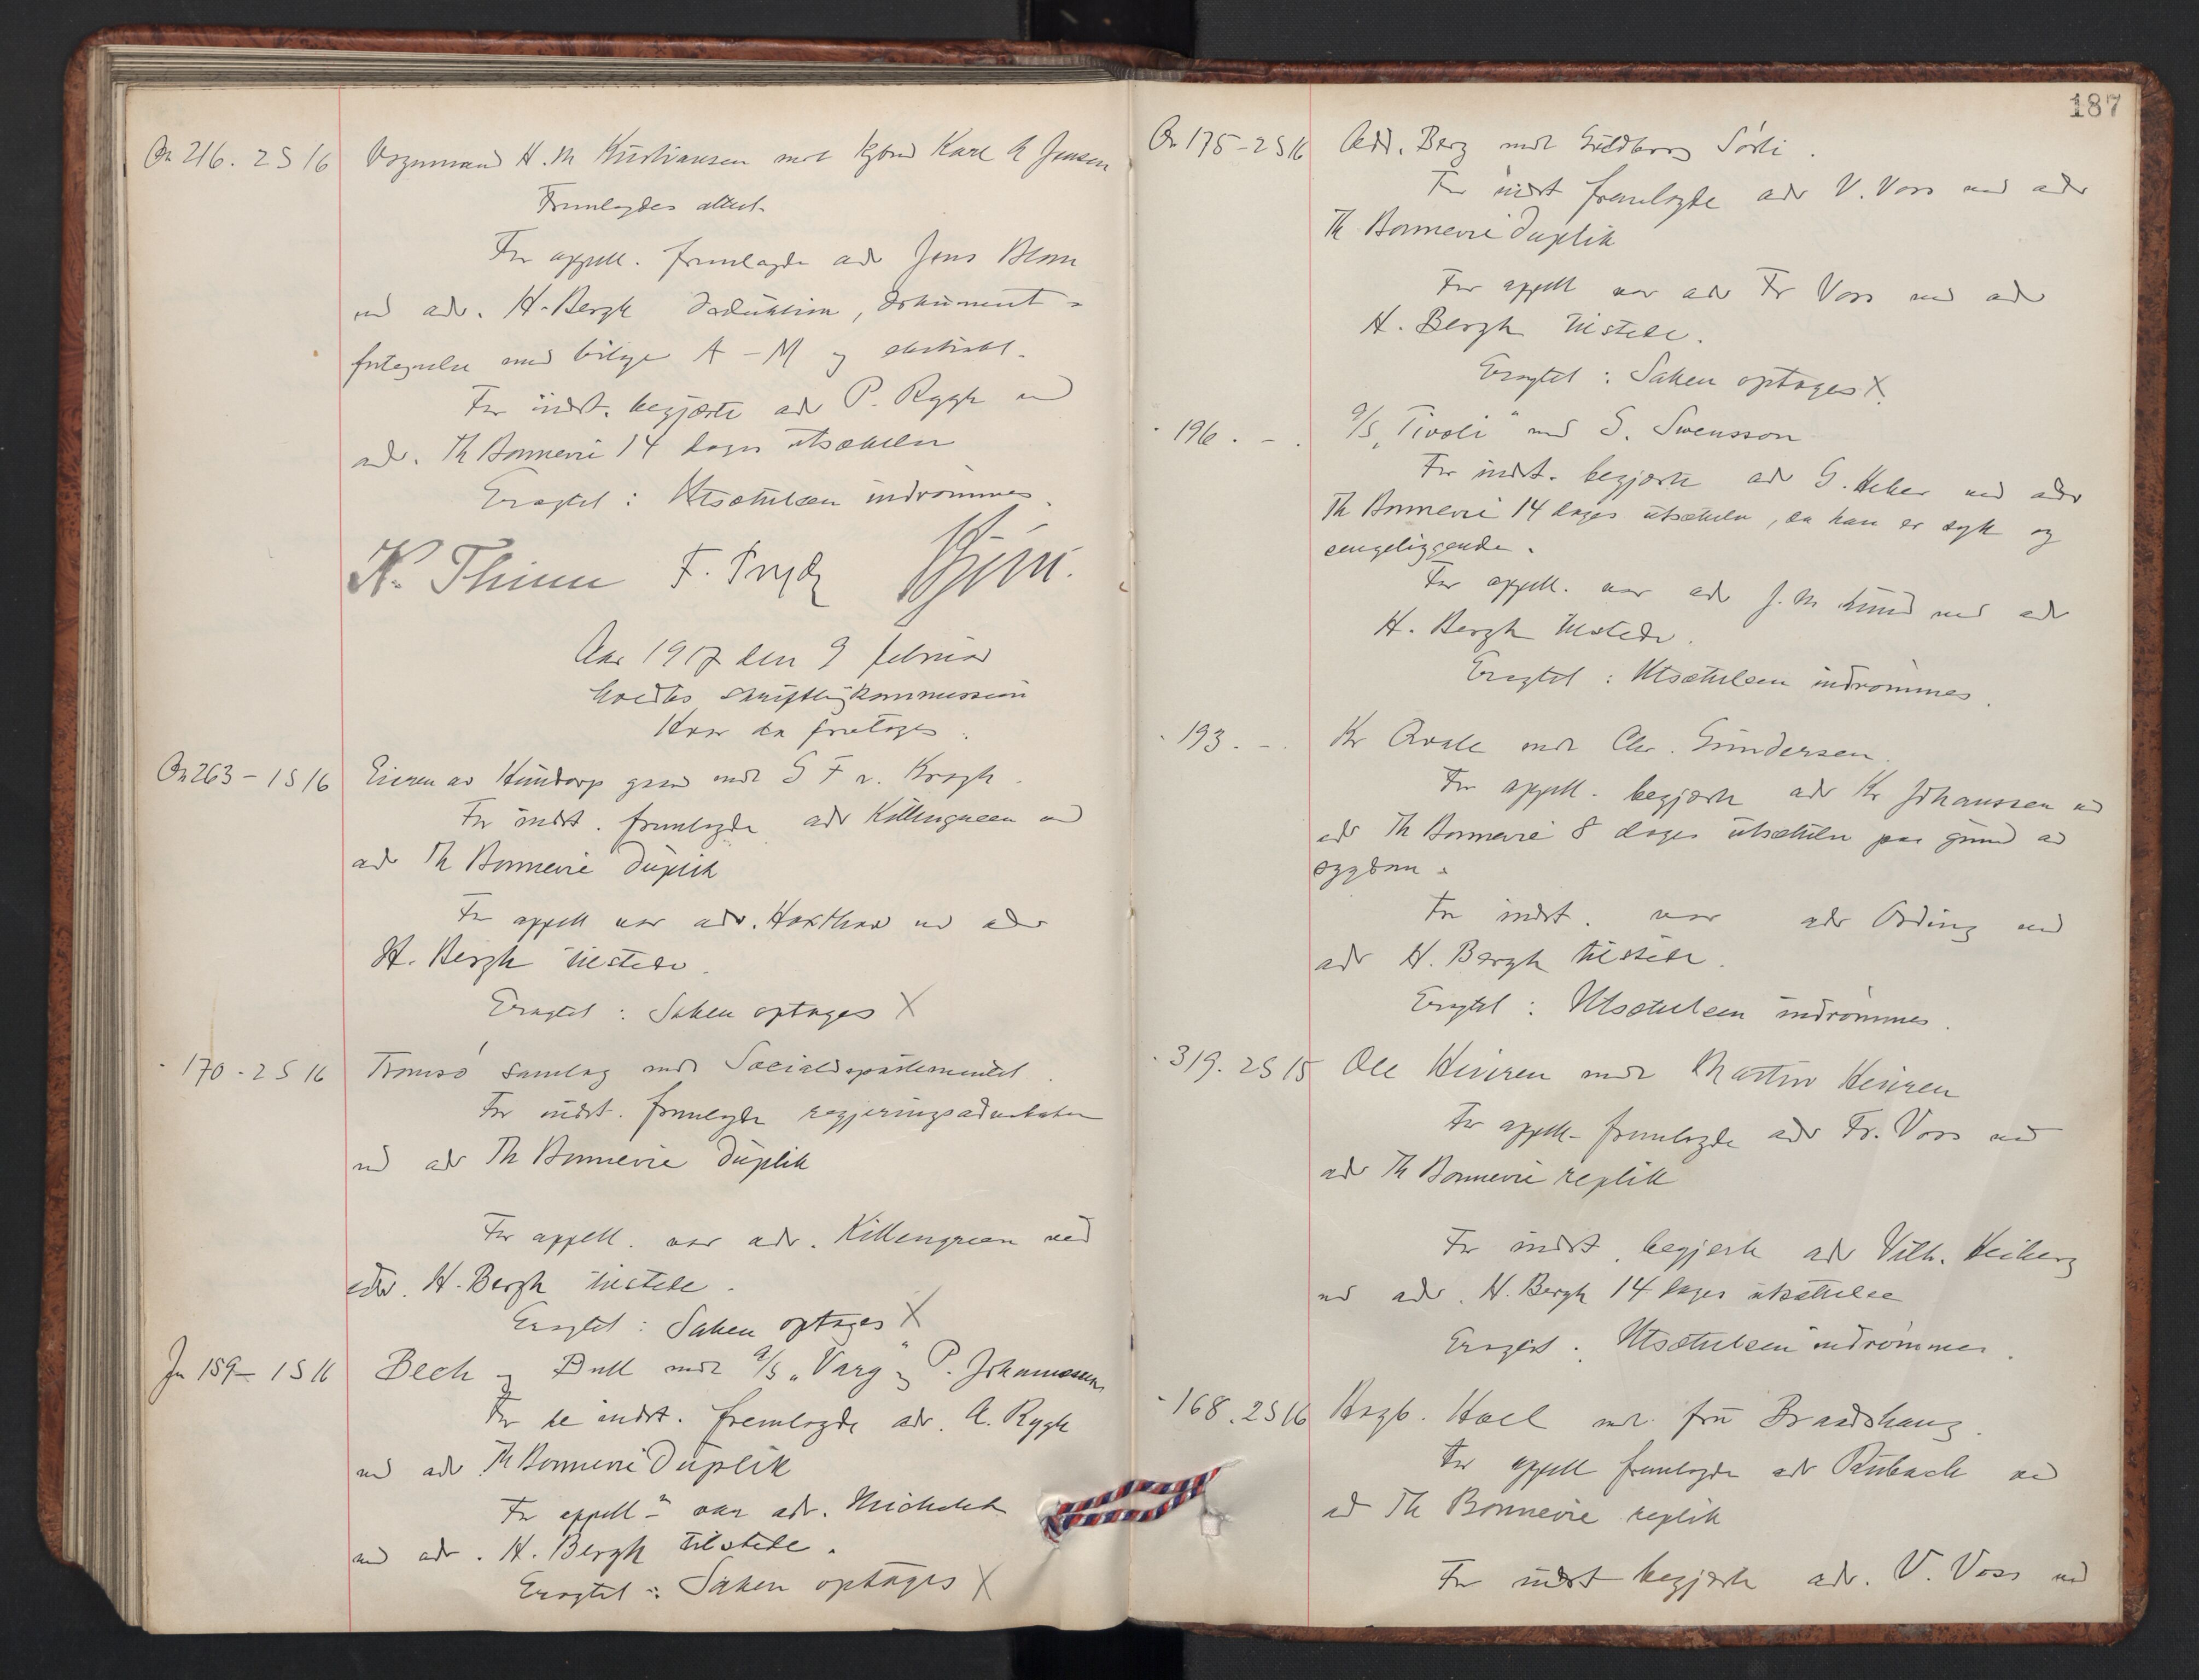 On 216. 2 S 16 Vognmand H. M Kristiansen mot kjbmd Karl A Jensen
Fremlagdes attest.
For appell. fremlagde adv Jens Blom
ved adv. H. Bergh deduktion, dokument-
fortegnelse med bilage A – M og ekstrakt.
For indst. begjærte adv P. Rygh ved
adv. Th Bonnevie 14 dages utsættelse
Eragtet : Utsættelsen indrømmes.
K. Thinn F. Prydz
Aar 1917 den 9 februar
holdtes skriftligkommission
Hvor da foretoges.
On 263 – 1 S 16 Eieren av Hundorp gaard mot G F v. Krogh.
For indst. fremlagde adv Killengreen ved
adv Th Bonnevie duplik
For appell var adv. Harthow ved adv
H. Bergh tilstede.
Eragtet : Saken optages X
- 170 - 2 S 16 Tromsø samlag mot Socialdepartementet.
For indst. fremlagde regjeringsadvokaten
ved adv Th Bonnevie duplik
For appell. var adv. Killengreen ved
adv. H. Bergh tilstede.
Eragtet : Saken optages X
Jn 159 – 1 S 16 Bech og Bull mot A/S „Varg“ og P. Johannesen
For de indst. fremlagde adv. A. Rygh
ved adv Th Bonnevie Duplik
For appell. var adv. Michelet
ved adv. H. Bergh tilstede.
Eragtet : Saken optages X
187
On 175 – 2 S 16 Adv. Berg mot Guldborg Sørli.
For indst fremlagde adv V. Voss ved adv
Th Bonnevie Duplik
For appell var adv Fr Voss ved adv
H. Bergh tilstede.
Eragtet : Saken optages X
- 196. - . A/S „Tivoli“ mot S. Swensson
For indst. begjærte adv G. Heber ved adv
Th Bonnevie 14 dages utsættelse, da han er syk og
sengeliggende.
For appell. var adv J. M. Lund ved adv
H. Bergh tilstede.
Eragtet : Utsættelsen indrømmes.
- 193. - . Kr Qvale mot Chr. Gundersen.
For appell. begjærte adv Kr Johanssen ved
adv Th Bonnevie 8 dages utsættelse paa grund av
sygdom.
For indst. var adv Ording ved
adv H. Bergh tilstede.
Eragtet : Utsættelsen indrømmes.
- 319. 2 S 15 Ole Heieren mot Martin Heieren
For appell. fremlagde adv Fr. Voss ved
adv Th Bonnevie replik
For indst. begjærte adv Vilh. Heiberg
ved adv. H. Bergh 14 dages utsættelse
Eragtet : Utsættelsen indrømmes.
- 168. 2 S 16 Hoel mot fru Brandshaug.
For appell fremlagde adv Rubach ved
ad Th Bonnevie replik
For indst begjærte adv. V. Voss ved